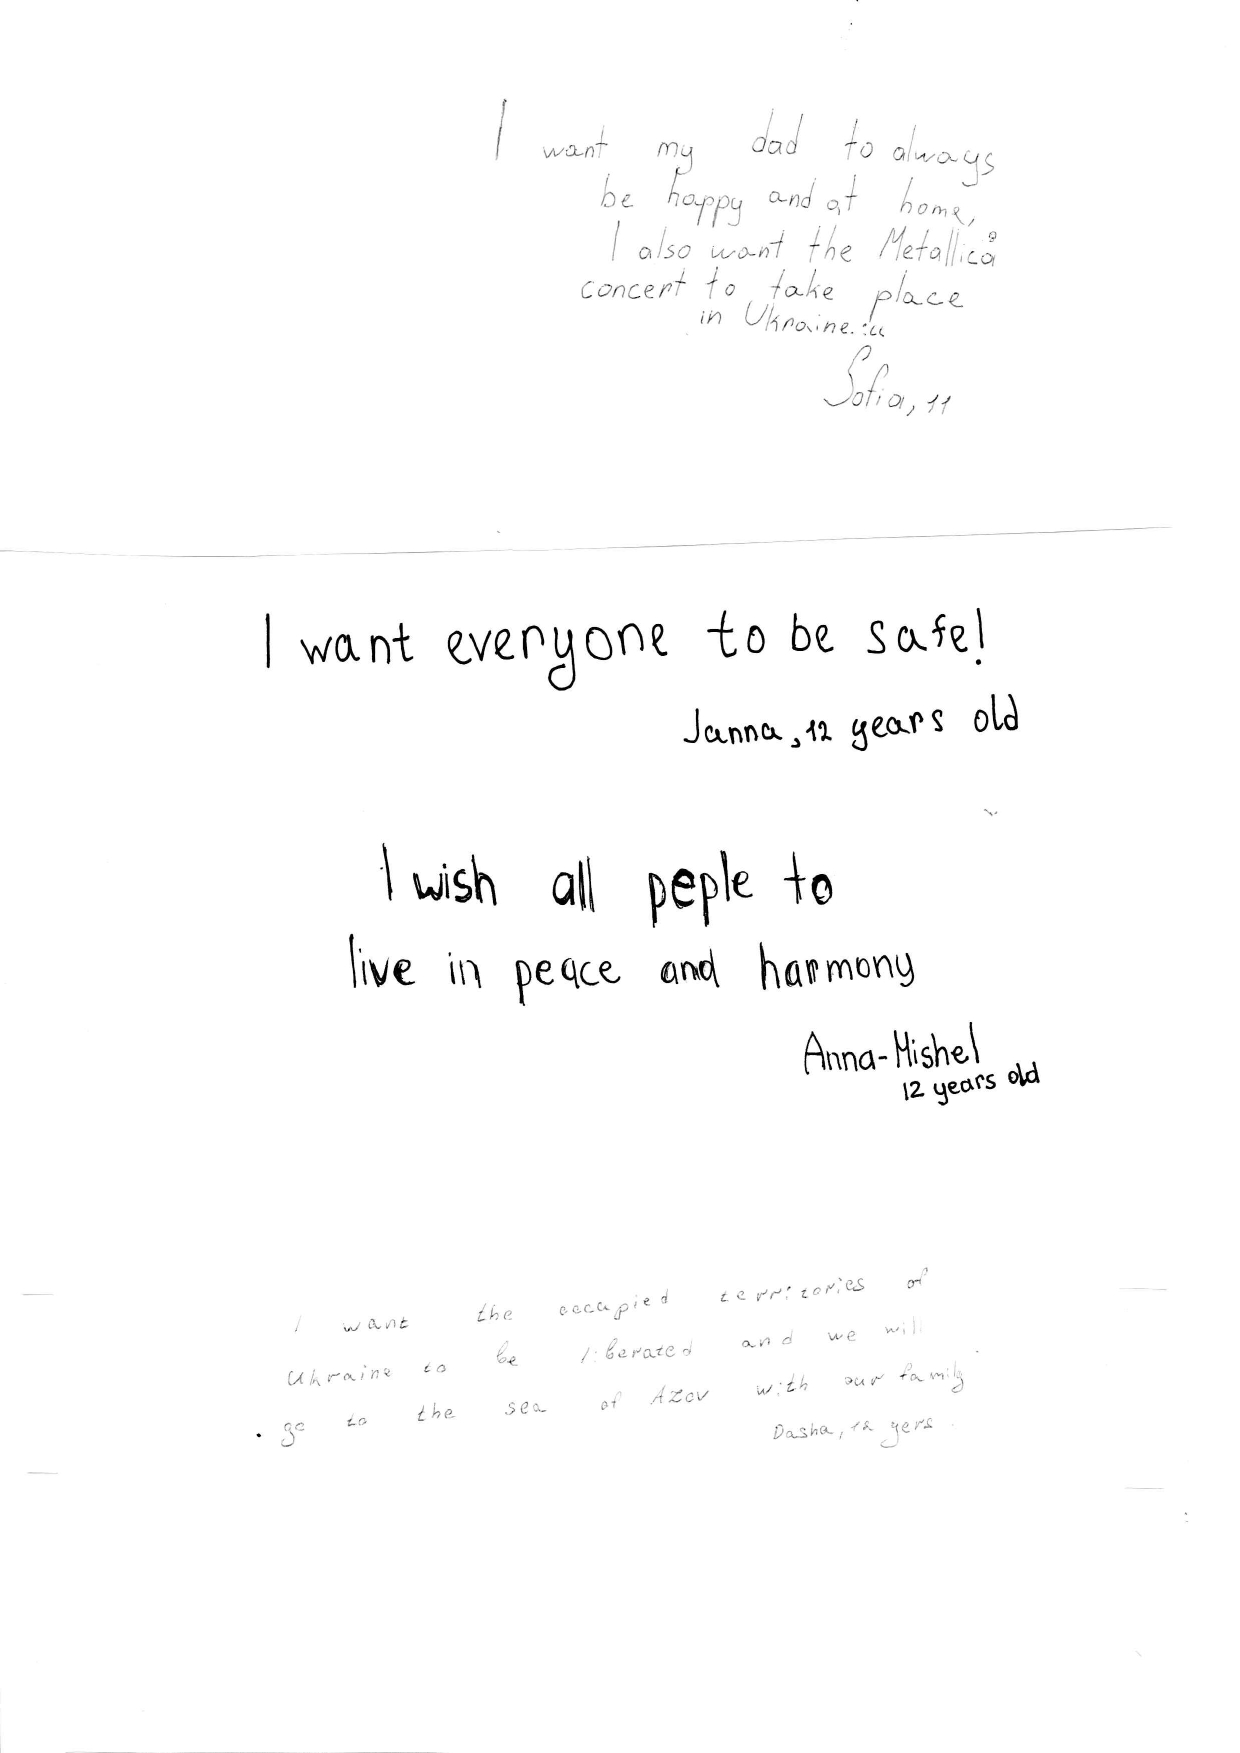 I want my dad to always
be happy and at home,
I also want the Metallica
concert to take place
in Ukraine.
Sofia, 11
I want everyone to be safe!
Janna, 12 years old
I wish all peple to
live in peace and harmony
Anna-Mishel
12 years old
I want the occupied territories of
Ukraine to be liberated and we will
go to the sea of Azov with our family
Dasha, 12 yers